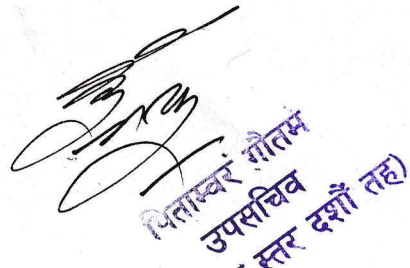 पिताम्बर गौतम
उपसचिव
स्तर दशौं तह)